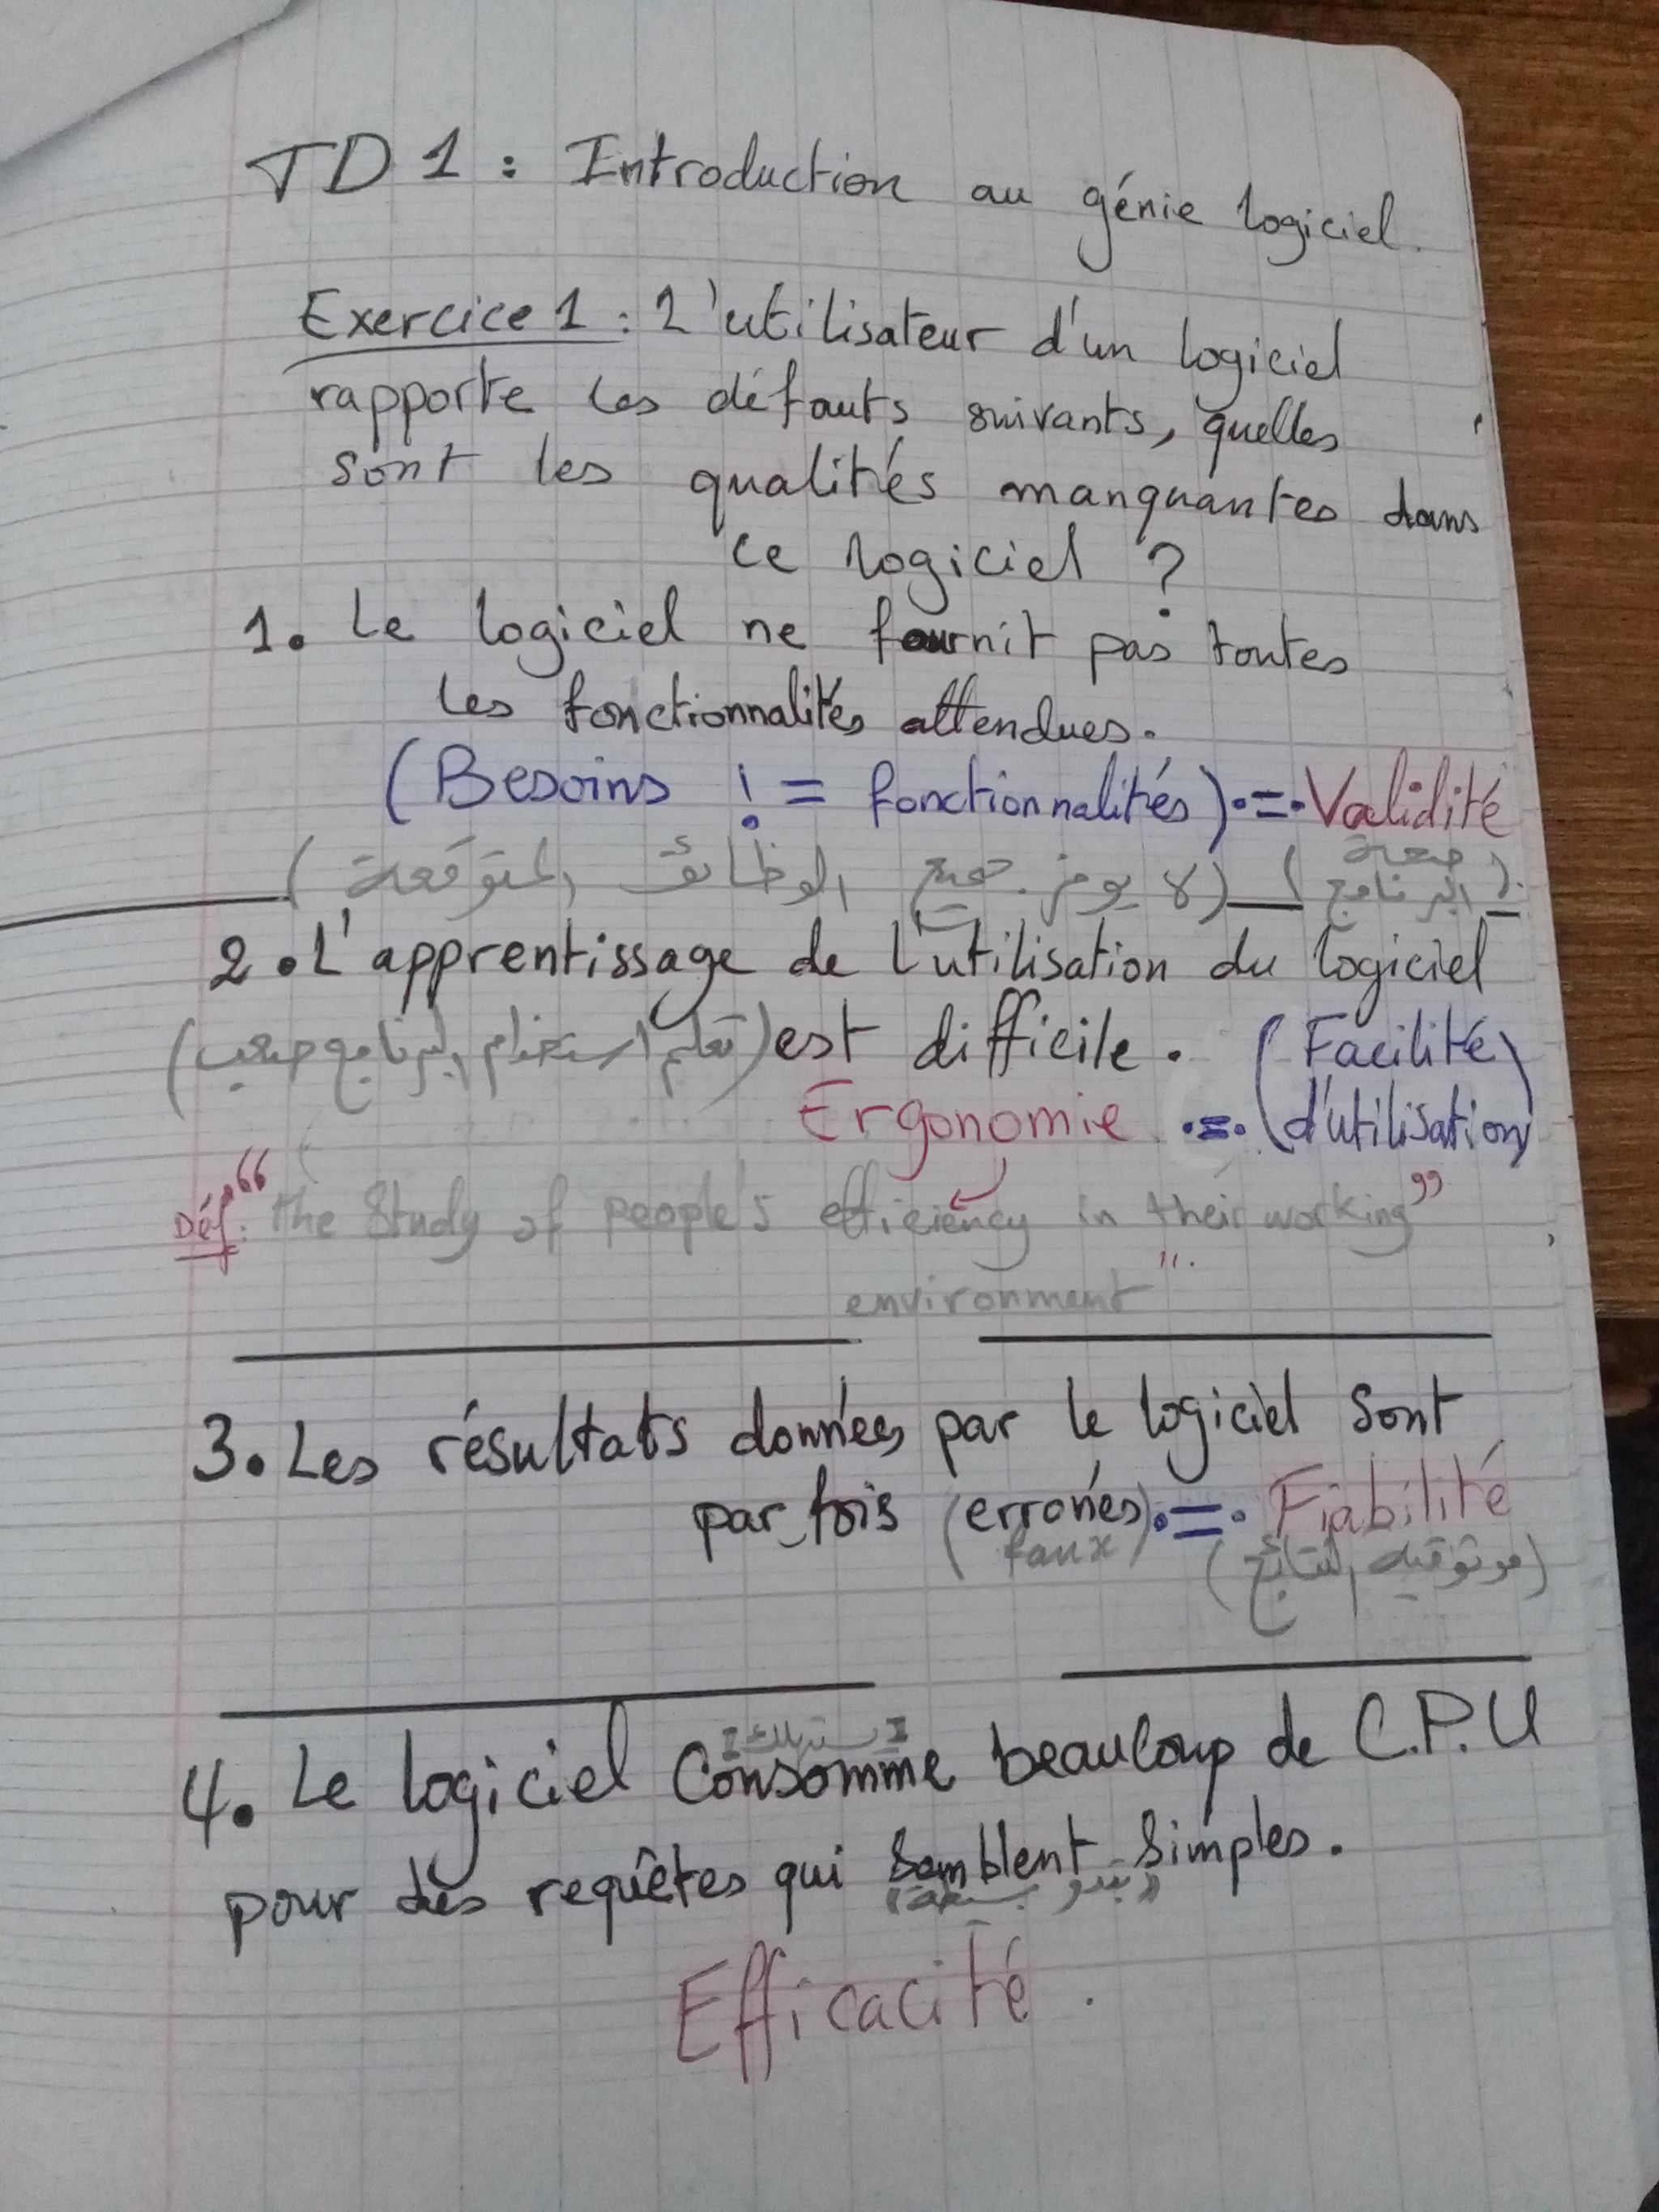 TD 1 : Introduction au génie logiciel.
Exercice 1 : L'utilisateur d'un logiciel
rapporte les défauts suivants, quelles
sont les qualités manquantes dans
ce logiciel ?
1. Le logiciel ne fournit pas toutes
les fonctionnalités attendues.
(Besoins != fonctionnalités) .=. Validité
(لا يوفر جميع الوظائف المتوقعة) (البرنامج)
2. L'apprentissage de l'utilisation du logiciel
(تعلم استخدام البرنامج صعب) est difficile. (Facilité
Ergonomie .=. d'utilisation)
Déf: "the Study of people's efficiency in their working"
environment".
3. Les résultats données par le logiciel sont
parfois (erronés) .=. Fiabilité
(faux) (موثوقية النتائج)
يستهلك
4. Le logiciel Consomme beaucoup de C.P.U
pour des requêtes qui semblent simples.
"تبدو بسيطة"
Efficacité.